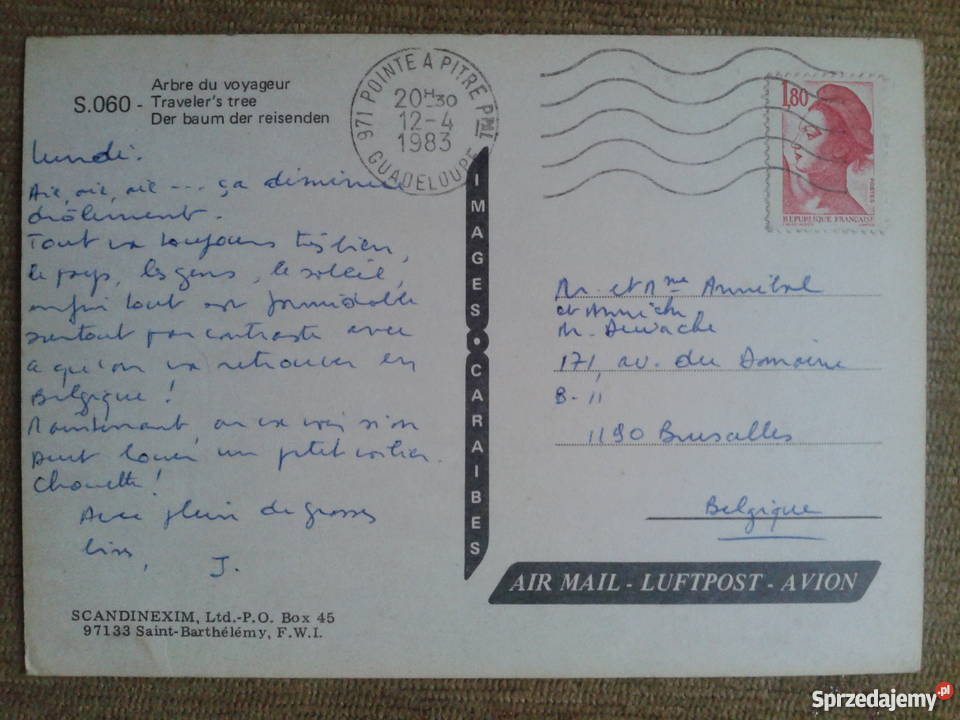 S.060 - Arbre du voyageur
Traveler's tree
Der baum der reisenden
971 POINTE A PITRE PPAL
20H30
12-4
1983
GUADELOUPE
1,80
POSTES
REPUBLIQUE FRANÇAISE
lundi.
Aie, aie, aie --- ça diminue
drôlement.
Tout va toujours très bien,
le pays, les gens, le soleil,
enfin tout est formidable
surtout par contraste avec
a qu'on va retrouver en
Belgique !
Maintenant, on va voir si on
peut louer un petit voilier.
Chouette !
Avec plein de grosses
bises,
J.
IMAGES CARAIBES
M. et Mme Annibal
et Annick
M. Dewache
171, av. du Domaine
8-11
1190 Bruxelles
Belgique
AIR MAIL - LUFTPOST - AVION
SCANDINEXIM, Ltd.-P.O. Box 45
97133 Saint-Barthélémy, F.W.I.
Sprzedajemy.pl